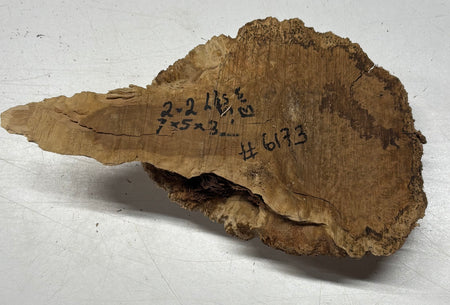 2.2 LBS
7x5x3
#6173